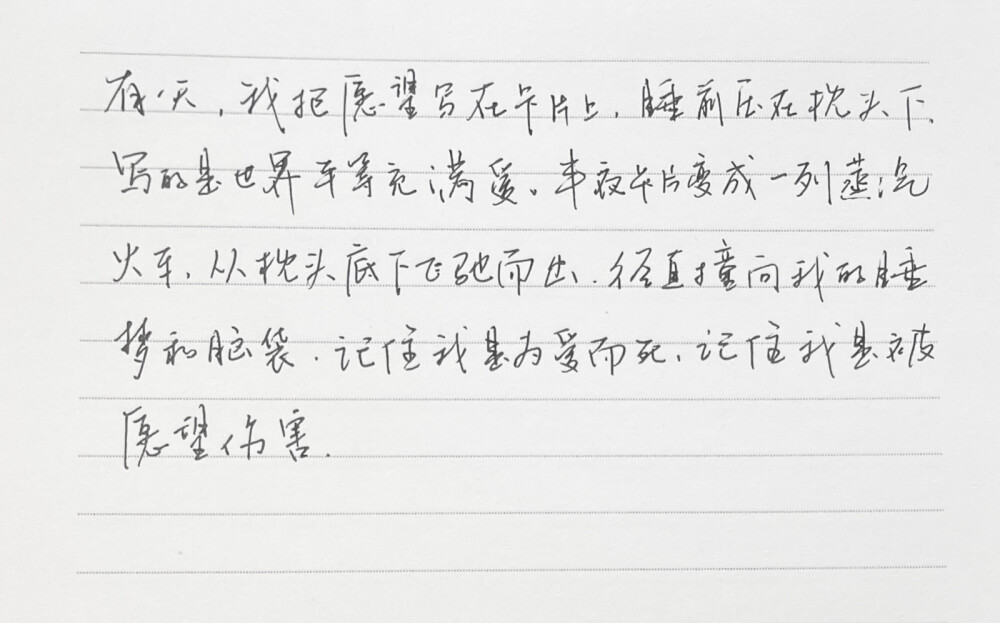 有一天，我把愿望写在卡片上，睡前压在枕头下，
写的是世界平等充满爱。半夜卡片变成一列蒸汽
火车，从枕头底下飞驰而出，径直撞向我的睡
梦和脑袋，记住我是为爱而死，记住我是被
愿望伤害.